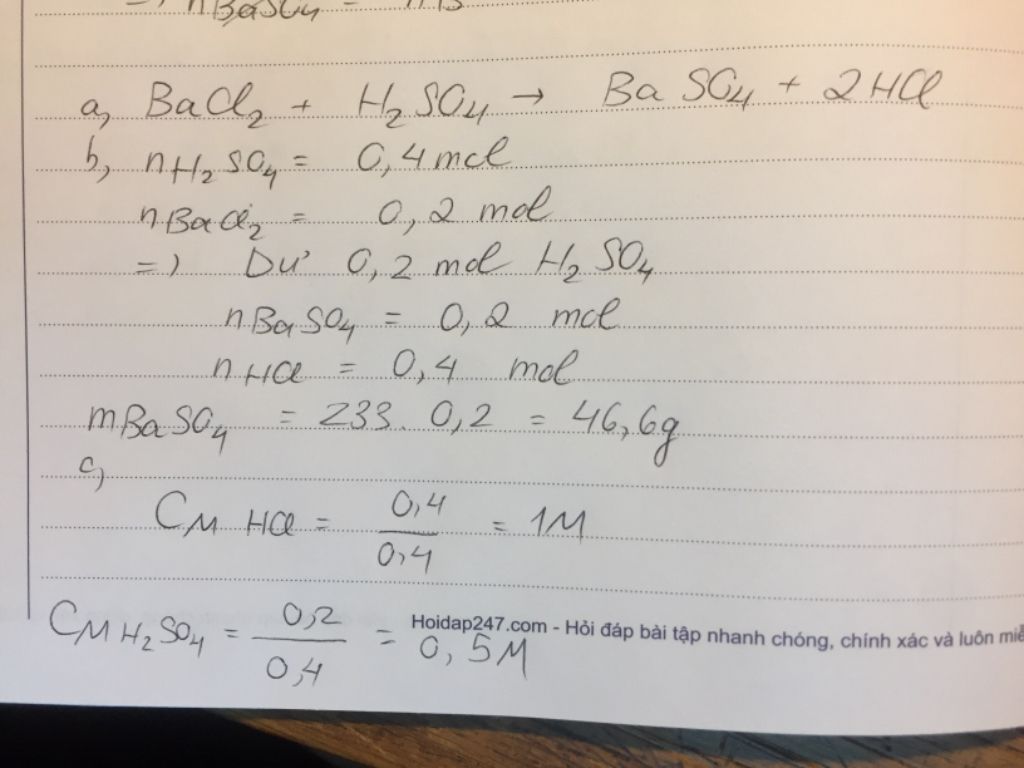 nBaSO4 =
a, BaCl2 + H2SO4 → BaSO4 + 2HCl
b, nH2SO4 = 0,4 mol
nBaCl2 = 0,2 mol
=) Dư 0,2 mol H2SO4
nBaSO4 = 0,2 mol
nHCl = 0,4 mol
mBaSO4 = 233. 0,2 = 46,6g
c,
CM HCl = 0,4/0,4 = 1M
CM H2SO4 = 0,2/0,4 = 0,5M
Hoidap247.com - Hỏi đáp bài tập nhanh chóng, chính xác và luôn